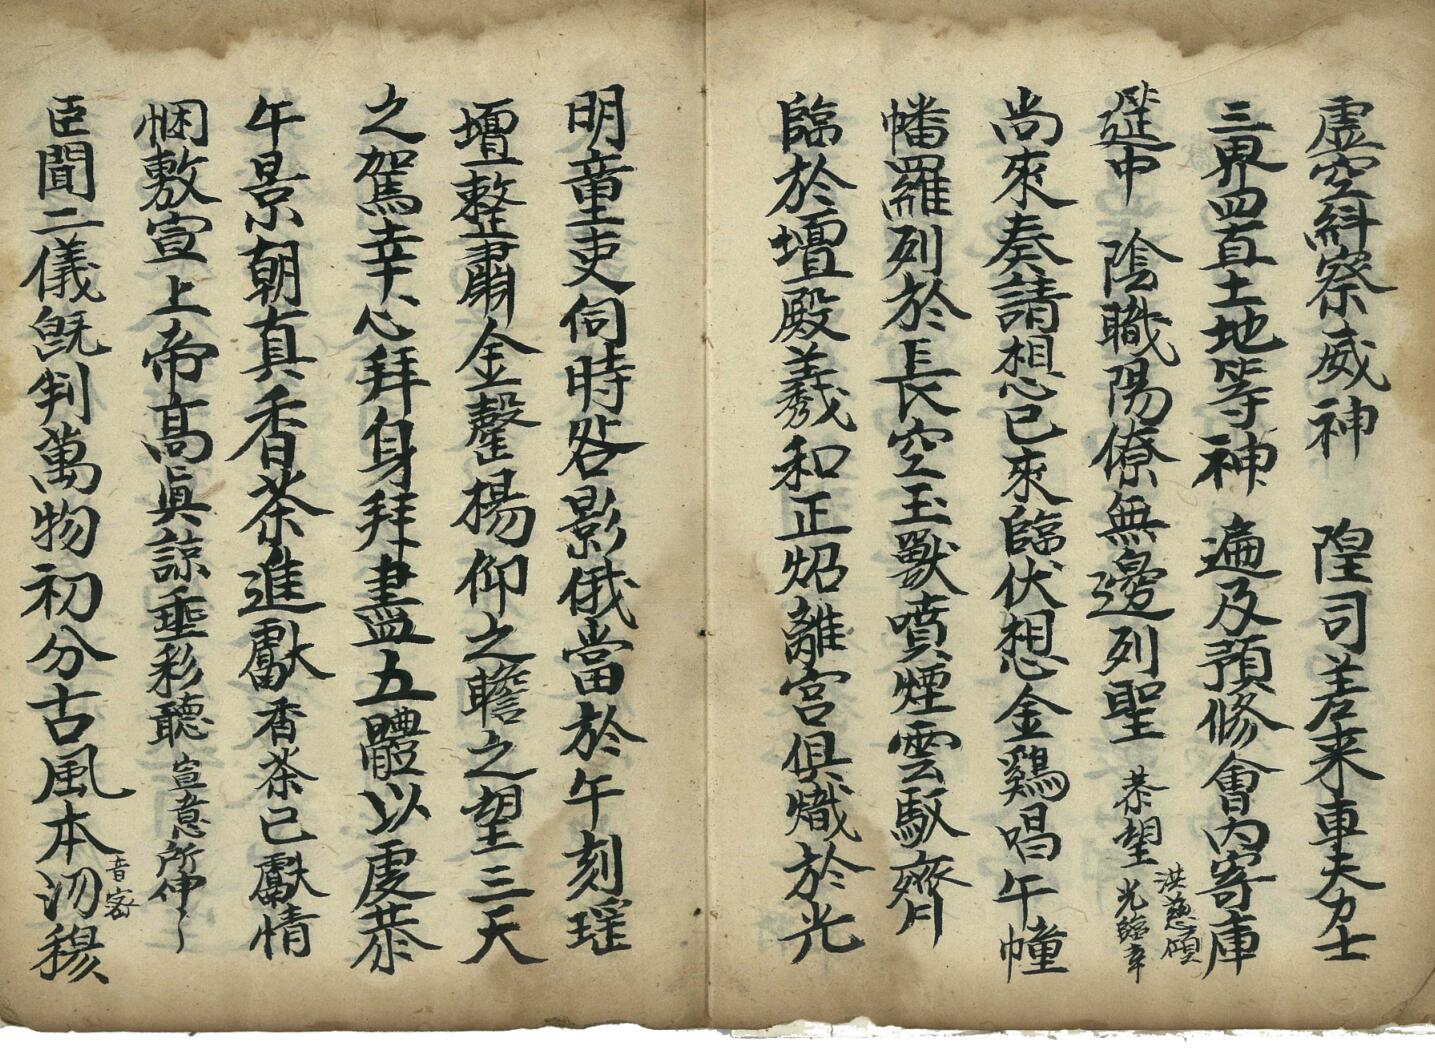 虚空糾察威神　隍司若来車夫力士
三界四直土地等神　遍及預修會内寄庫
筵中　陰職陽僚無邊列聖　恭望
洪慈頫
光臨幸
尚來奏請想已來臨伏想金鷄唱午幢
幡羅列於長空玉獸噴煙雲馭齊
臨於壇殿羲和正炤離宫俱熾於光
明童吏伺時咎影俄當於午刻瑶
壇整肅金聲楊仰之瞻之望三天
之駕幸心拜身拜盡五體以虔恭
午景朝真香茶進獻香茶已獻情
悃敷宣上帝高眞諒垂彩聽　宣意所伸〻
臣聞二儀旣判萬物初分古風本沕穆
音密